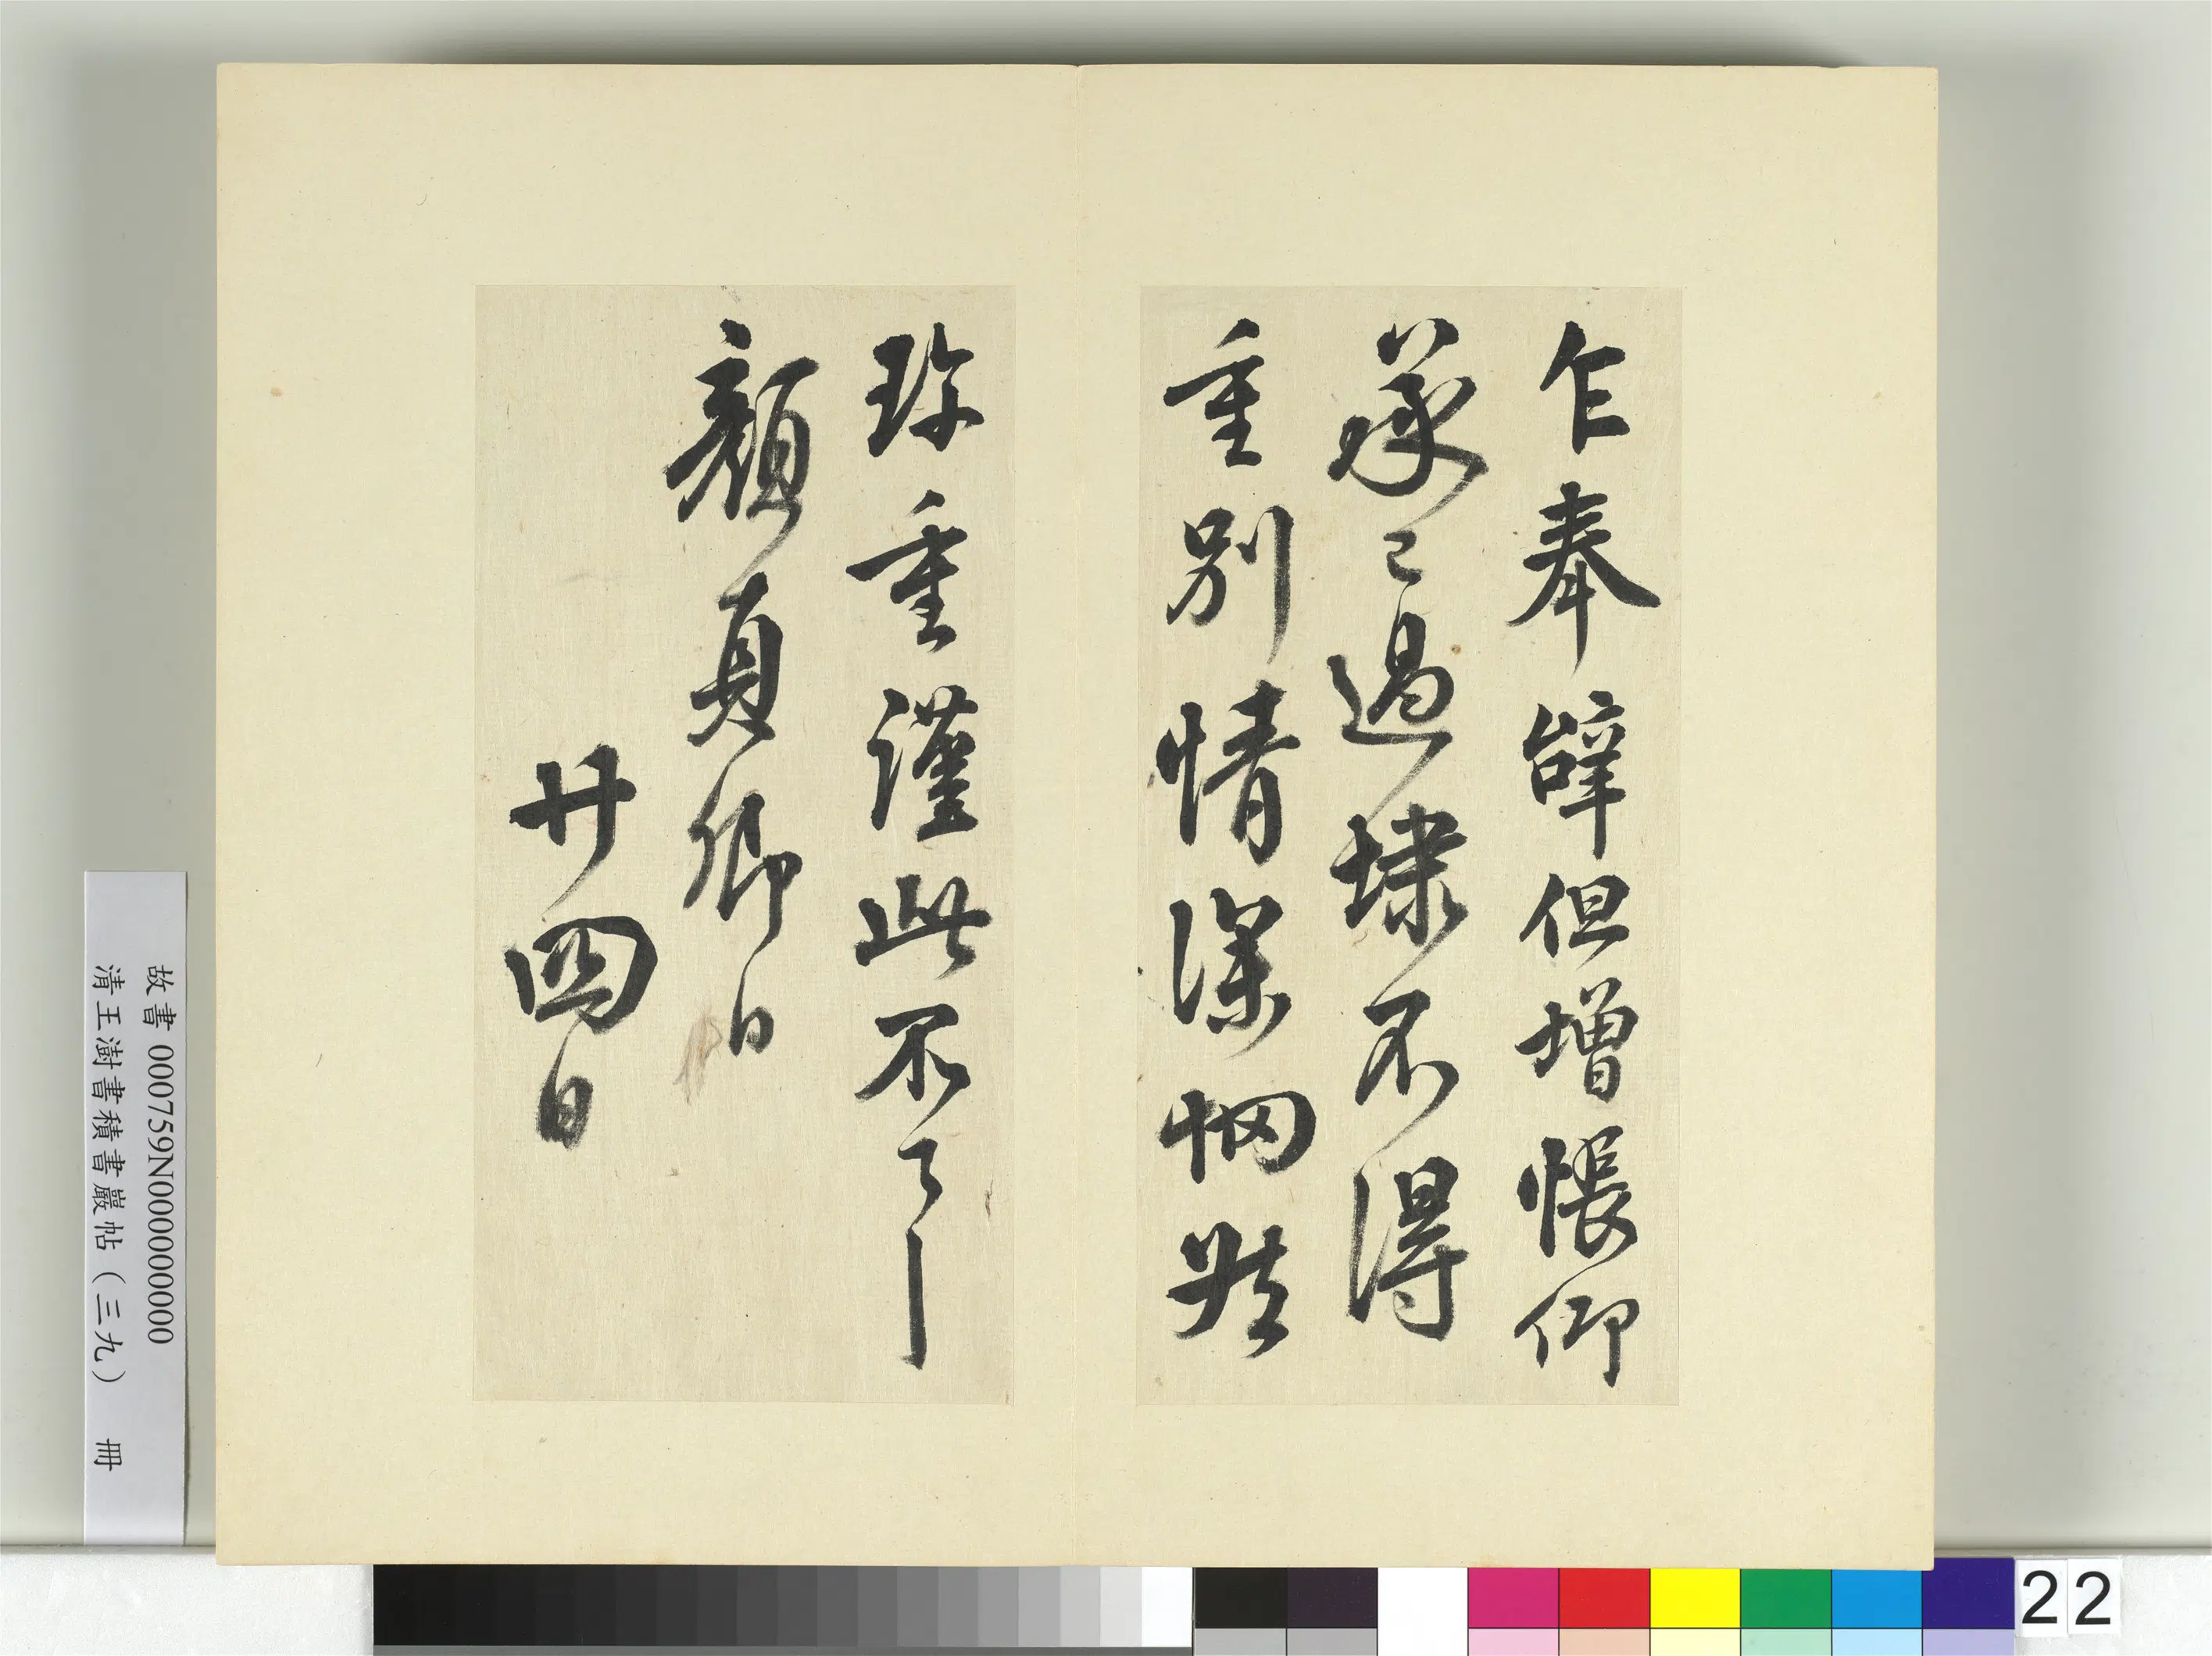 乍奉辭但增悵仰
承已過埭不得
重別情深惘然
珍重謹此不
顏真卿白
廿四日
故書 000759N000000000
清王澍書積書巖帖(三九) 冊
22